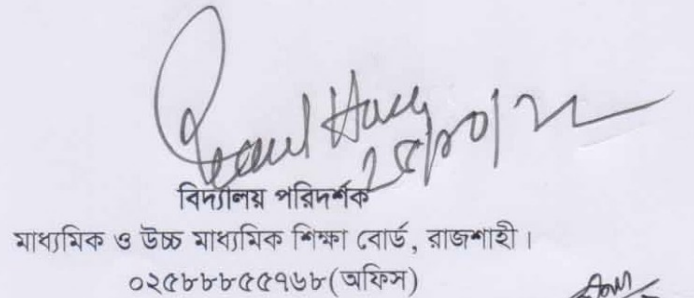 ২৫/১০/২২
বিদ্যালয় পরিদর্শক
মাধ্যমিক ও উচ্চ মাধ্যমিক শিক্ষা বোর্ড, রাজশাহী।
০২৫৮৮৮৫৫৭৬৮(অফিস)